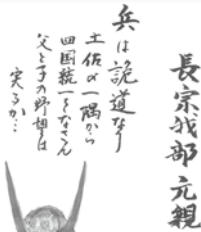 長宗我部 元親
兵は詭道なり
土佐の一隅から
四国統一をなさん
父と子の野望は
実るか…